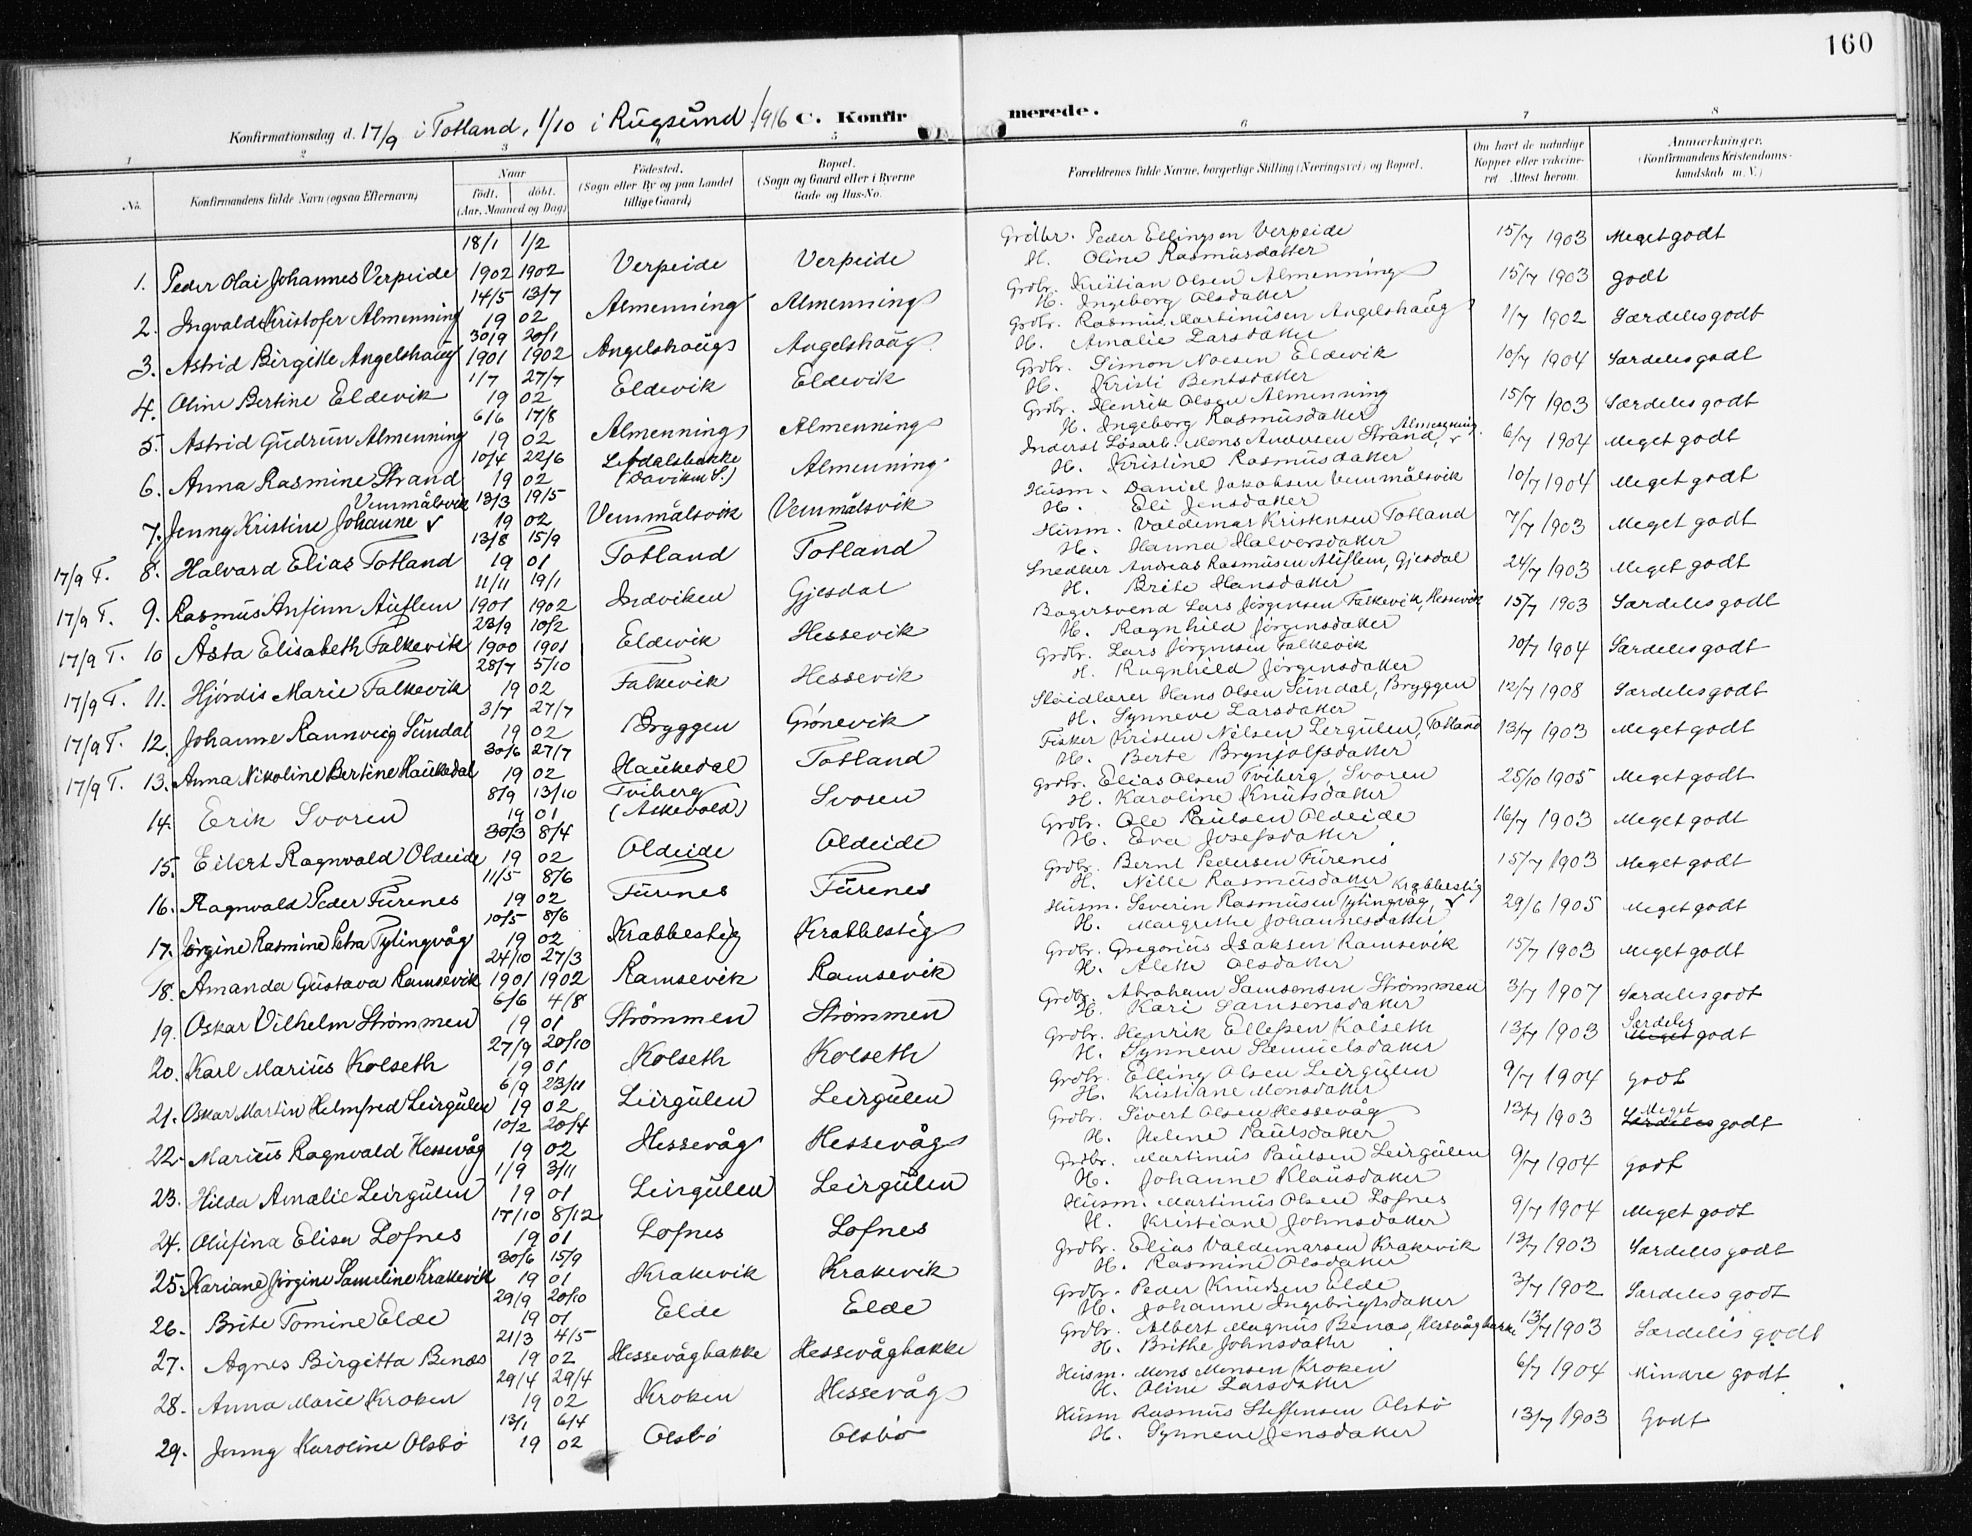 160
Konfirmationsdag d. 17/9 i Totland, 1/10 i Rugsund 1916 C. Konfirmerede.
1 2 3 4 5 6 7 8
No. Konfirmandens fulde Navn (ogsaa Efternavn) Naar født. døbt. (Aar, Maaned og Dag) Fødested. (Sogn eller By og paa Landet tillige Gaard) Bopæl. (Sogn og Gaard eller i Byerne Gade og Hus-No. Forældrenes fulde Navne, borgerlige Stilling (Næringsvei) og Bopæl. Om havt de naturlige Kopper eller vakcineret. Attest herom. Anmærkninger. (Konfirmandens Kristendomskundskab m. V.)
1. Peder Olai Johannes Verpeide 18/1 1902 1/2 1902 Verpeide Verpeide Grdbr. Peder Ellingsen Verpeide H. Oline Rasmusdatter 15/7 1903 Meget godt
2. Ingvald Kristofer Almenning 14/5 13/7 1902 Almenning Almenning Grdbr. Kristian Olsen Almenning H. Ingeborg Olsdatter 15/7 1903 godt
3. Astrid Birgitte Angelshaug 30/9 1901 20/1 1902 Angelshaug Angelshaug Grdbr. Rasmus Martinusen Angelshaug H. Amalie Larsdatter 1/7 1902 Særdeles godt
4. Oline Bertine Eldevik 1/7 27/7 1902 Eldevik Eldevik Grdbr. Simon Noesen Eldevik H. Kristi Bentsdatter 10/7 1904 Særdeles godt
5. Astrid Gudrun Almenning 6/6 17/8 1902 Almenning Almenning Grdbr. Henrik Olsen Almenning H. Ingeborg Rasmusdatter 15/7 1903 Særdeles godt
6. Anna Rasmine Strand 10/4 22/6 1902 Levdalsbakke (Daviken S.) Almenning Inderst Løsarb. Mons Andersen Strand, Almenning H. Kristine Rasmusdatter 6/7 1904 Meget godt
7. Jenny Kristine Johanne Vemmålsvik 13/3 19/5 1902 Vemmålsvik Vemmålsvik Husm. Daniel Jakobsen Vemmålsvik H. Eli Jensdatter 10/7 1904 Meget godt
17/9 T. 8. Halvard Elias Totland 13/8 15/9 1901 Totland Totland Husm. Valdemar Kristensen Totland H. Hanna Halversdatter 7/7 1903 Meget godt
17/9 T. 9. Rasmus Anfinn Auflem 11/11 1901 19/1 1902 Indviken Gjesdal Snedker Andreas Rasmusen Auflem, Gjesdal H. Brite Hansdatter 24/7 1903 Meget godt
17/9 T. 10 Åsta Elisabeth Falkevik 23/9 1900 10/2 1901 Eldevik Hessevik Bagersvend Lars Jørgensen Falkevik, Hessevik H. Ragnhild Jørgensdatter 15/7 1903 Særdeles godt
17/9 T. 11. Hjørdis Marie Falkevik 28/7 5/10 1902 Falkevik Hessevik Grdbr. Lars Jørgensen Falkevik H. Ragnhild Jørgensdatter 10/7 1904 Særdeles godt
17/9 T. 12. Johanne Rannveig Sundal 3/7 27/7 1902 Bryggen Grønevik Sløidlærer Hans Olsen Sundal, Bryggen H. Synneve Larsdatter 12/7 1908 Særdeles godt
17/9 T. 13. Anna Nikoline Bertine Haukedal 30/6 27/7 1902 Haukedal Totland Fisker Kristen Nilsen Lergulen, Totland H. Berte Brynjolfsdatter 13/7 1903 Meget godt
14. Erik Svoren 8/9 13/10 1901 Tviberg (Askevold) Svoren Grdbr. Elias Olsen Tviberg, Svoren H. Karoline Knutsdatter 25/10 1905 Meget godt
15. Eilert Ragnvald Oldeide 30/3 8/4 1902 Oldeide Oldeide Grdbr. Ole Paulsen Oldeide H. Eva Josefsdatter 16/7 1903 Meget godt
16. Ragnvald Peder Furenes 11/5 8/6 1902 Furenes Furenes Grdbr. Bernt Pedersen Furenes H. Nille Rasmusdatter 15/7 1903 Meget godt
17. Jørgine Rasmine Petra Tytingvåg 10/5 8/6 1902 Krabbestig Krabbestig Husm. Severin Rasmusen Tytingvåg, Krabbestig H. Margrethe Johannesdatter 29/6 1905 Meget godt
18. Amanda Gustava Ramsevik 24/10 1901 27/3 1902 Ramsevik Ramsevik Grdbr. Gregorius Isaksen Ramsevik H. Alette Olsdatter 15/7 1903 Meget godt
19. Oskar Vilhelm Strømmen 6/6 4/8 1901 Strømmen Strømmen Grdbr. Abraham Samsonsen Strømmen H. Kari Samsensdatter 3/7 1907 Særdeles godt
20. Karl Marius Kolseth 27/9 20/10 1901 Kolseth Kolseth Grdbr. Henrik Ellefsen Kolseth H. Synneve Samuelsdatter 13/7 1903 Særdeles Meget godt
21. Oskar Martin Helmfred Leirgulen 6/9 23/11 1902 Leirgulen Leirgulen Grdbr. Elling Olsen Leirgulen H. Kristiane Monsdatter 9/7 1904 godt
22. Marius Ragnvald Hessevåg 10/2 20/4 1902 Hessevåg Hessevåg Grdbr. Sivert Olsen Hessevåg H. Helene Paulsdatter 13/7 1903 Meget Særdeles godt
23. Hilda Amalie Leirgulen 1/9 3/11 1901 Leirgulen Leirgulen Grdbr. Martinus Paulsen Leirgulen H. Johanne Klausdatter 9/7 1904 godt
24. Olufina Elisa Lofnes 17/10 8/12 1901 Lofnes Lofnes Husm. Martinus Olsen Lofnes H. Kristiane Johnsdatter 9/7 1904 Meget godt
25. Kariane Jørgine Sameline Krakevik 30/6 15/9 1901 Krakevik Krakevik Grdbr. Elias Valdemarsen Krakevik H. Rasmine Olsdatter 13/7 1903 Særdeles godt
26. Brite Tomine Elde 29/9 20/10 1901 Elde Elde Grdbr. Peder Knudsen Elde H. Johanne Ingebrigtsdatter 3/7 1902 Særdeles godt
27. Agnes Birgitta Benæs 21/3 4/5 1902 Hessevågbakke Hessevågbakke Grdbr. Albert Magnus Benæs, Hessevågbakke H. Brithe Johnsdatter 13/7 1903 Særdeles godt
28. Anna Marie Kroken 29/4 29/4 1902 Kroken Hessevåg Husm. Mons Monsen Kroken H. Oline Larsdatter 6/7 1904 Mindre godt
29. Jenny Karoline Olsbø 13/1 6/4 1902 Olsbø Olsbø Husm Rasmus Steffensen Olsbø H. Synneve Jensdatter 13/7 1903 Godt